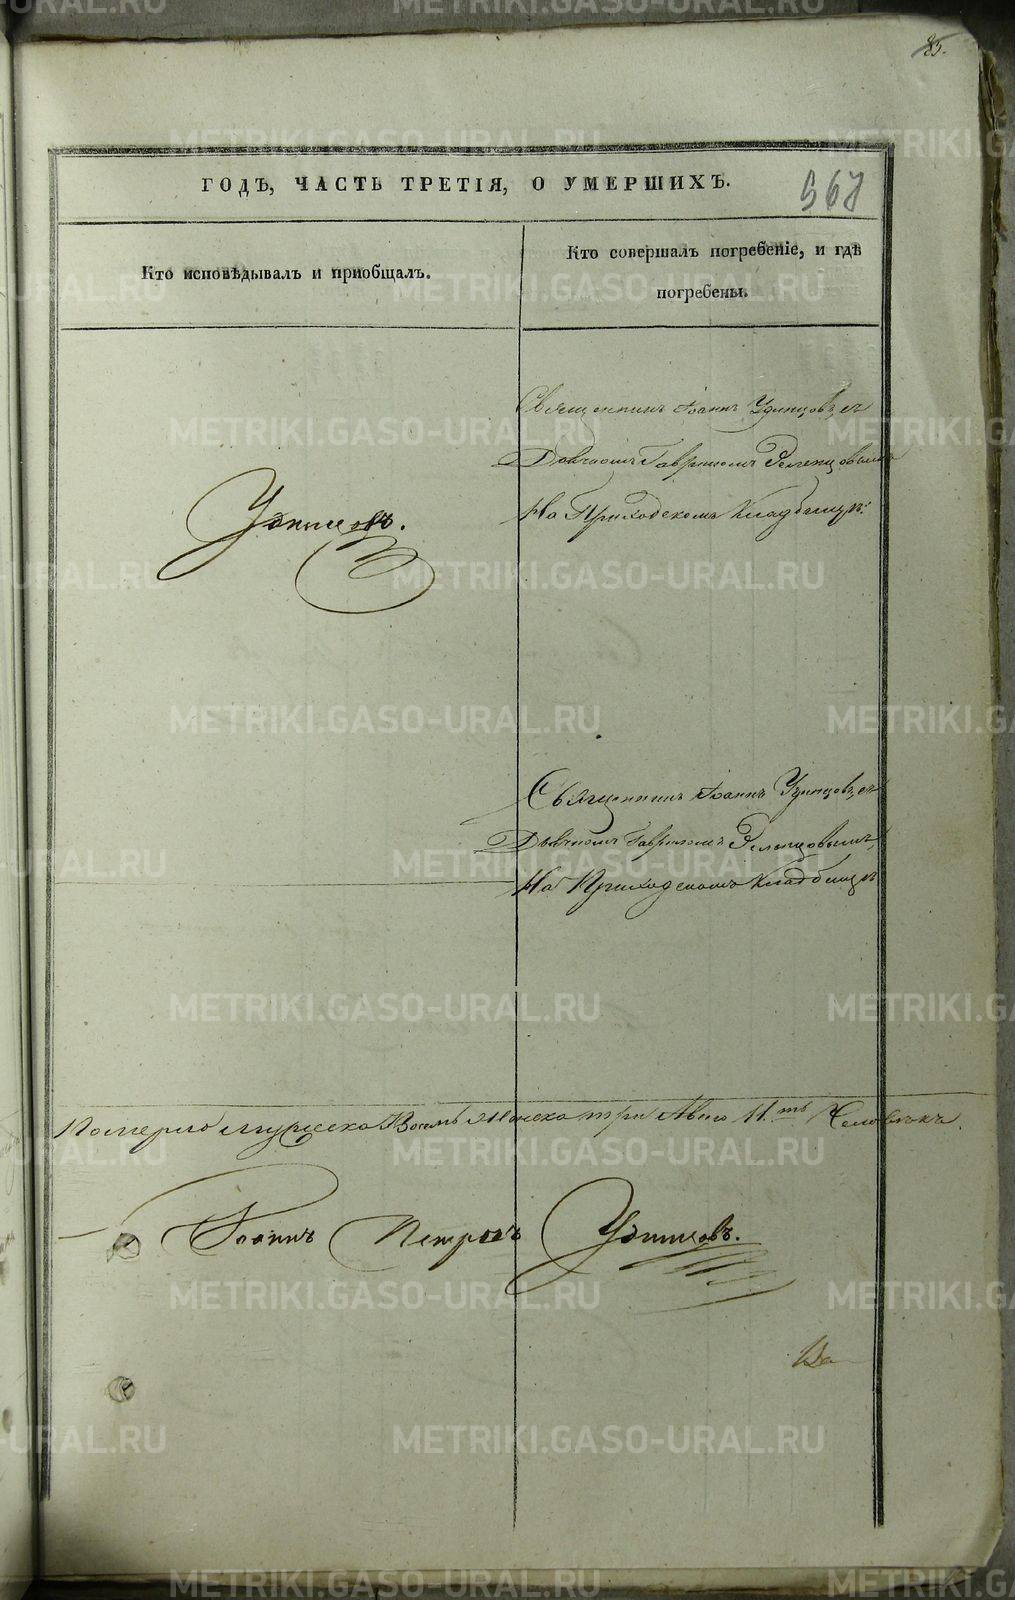 85.
ГОДЪ, ЧАСТЬ ТРЕТІЯ, О УМЕРШИХЪ.
568
Кто исповѣдывалъ и приобщалъ.
Кто совершалъ погребеніе, и гдѣ
погребены.
Священникъ Іоаннъ Удинцовъ, съ
Дьячкомъ Гавріиломъ
На Приходскомъ кладбищѣ.
Удинцовъ.
Священникъ Іоаннъ Удинцовъ, съ
Дьячкомъ Гавріиломъ
На Приходскомъ кладбищѣ
Померло мужеска Восемь Женска три Авсего 11.ть Человѣкъ.
Іоаннъ Петровъ Удинцовъ.
METRIKI.GASO-URAL.RU